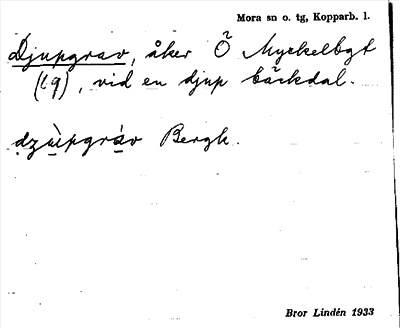 Mora sn o. tg, Kopparb. l.
Djupgrav, åker Ö Myckelbgt
(19), vid en djup bäckdal.
dzùpgràv Bergk.
Bror Lindén 1933